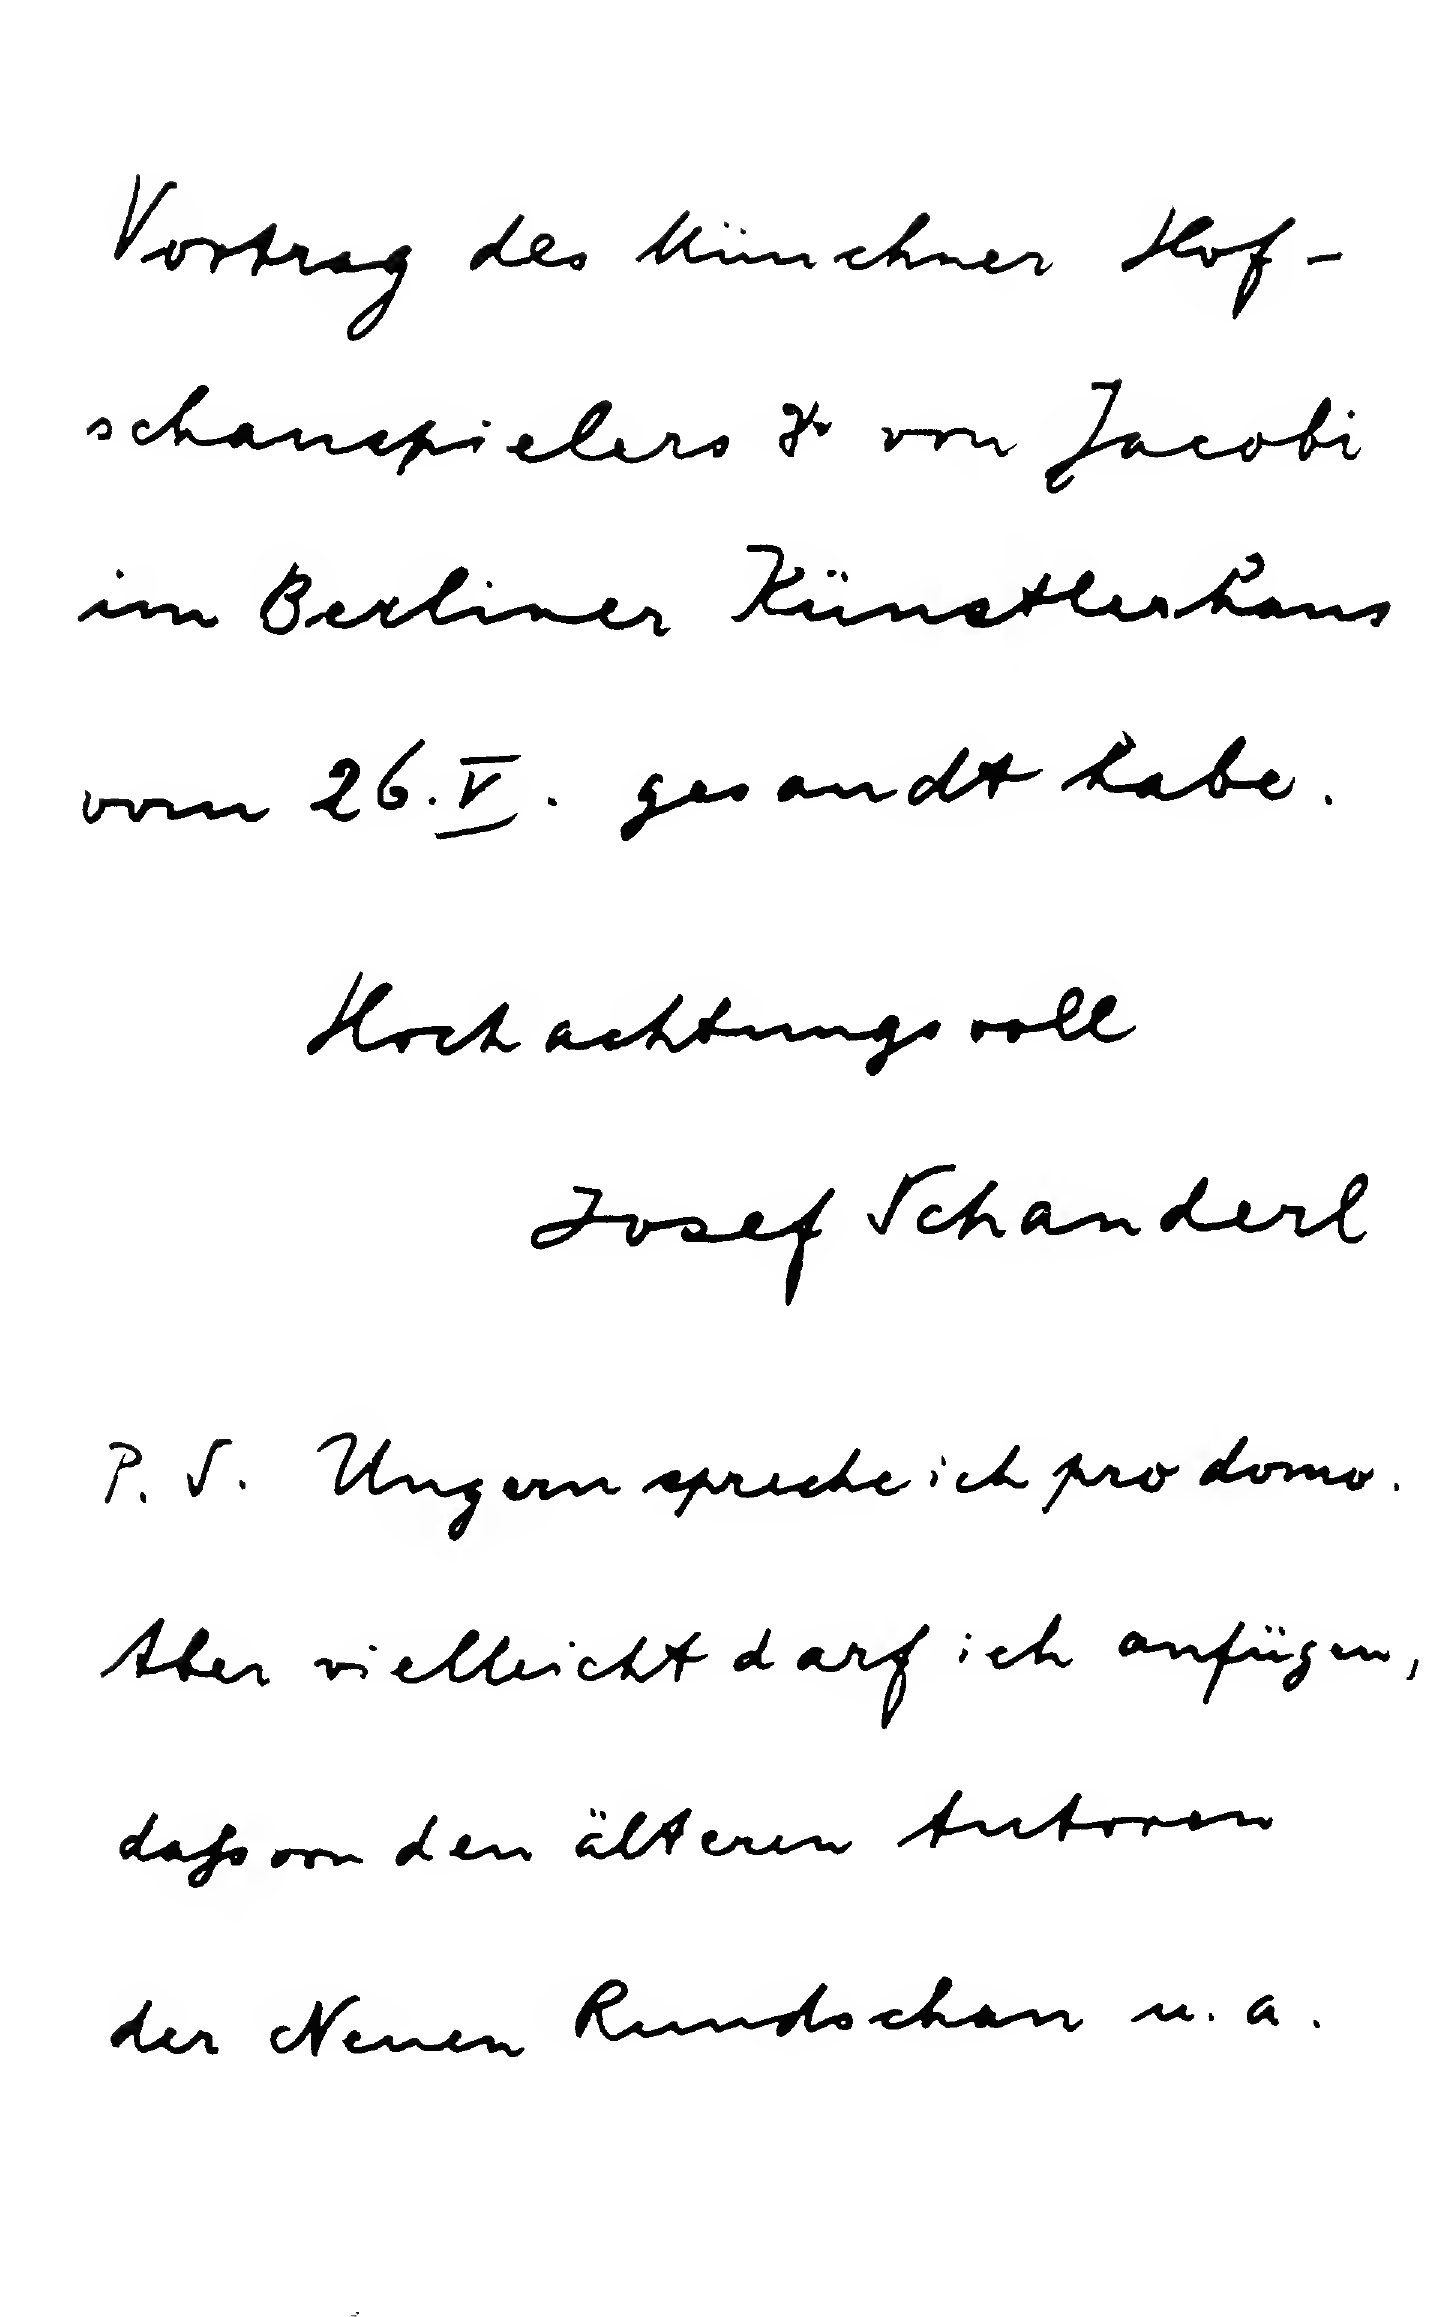 Vortrag des Münchner Hof-
schauspielers v. von Jacobi
im Berliner Künstlerhaus
vom 26. V. gesandt habe.
Hochachtungsvoll
Josef Schanderl
P. S. Ungern spreche ich pro domo.
Aber vielleicht darf ich anfügen,
dass von den älteren Autoren
der Neuen Rundschau u. a.